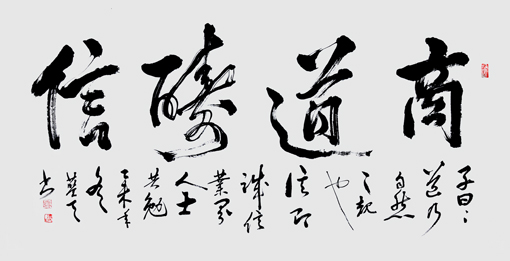 商道酬信
子曰:
道乃
自然
之規
也
信即
誠信
業界
人士
共勉
未年
冬
书